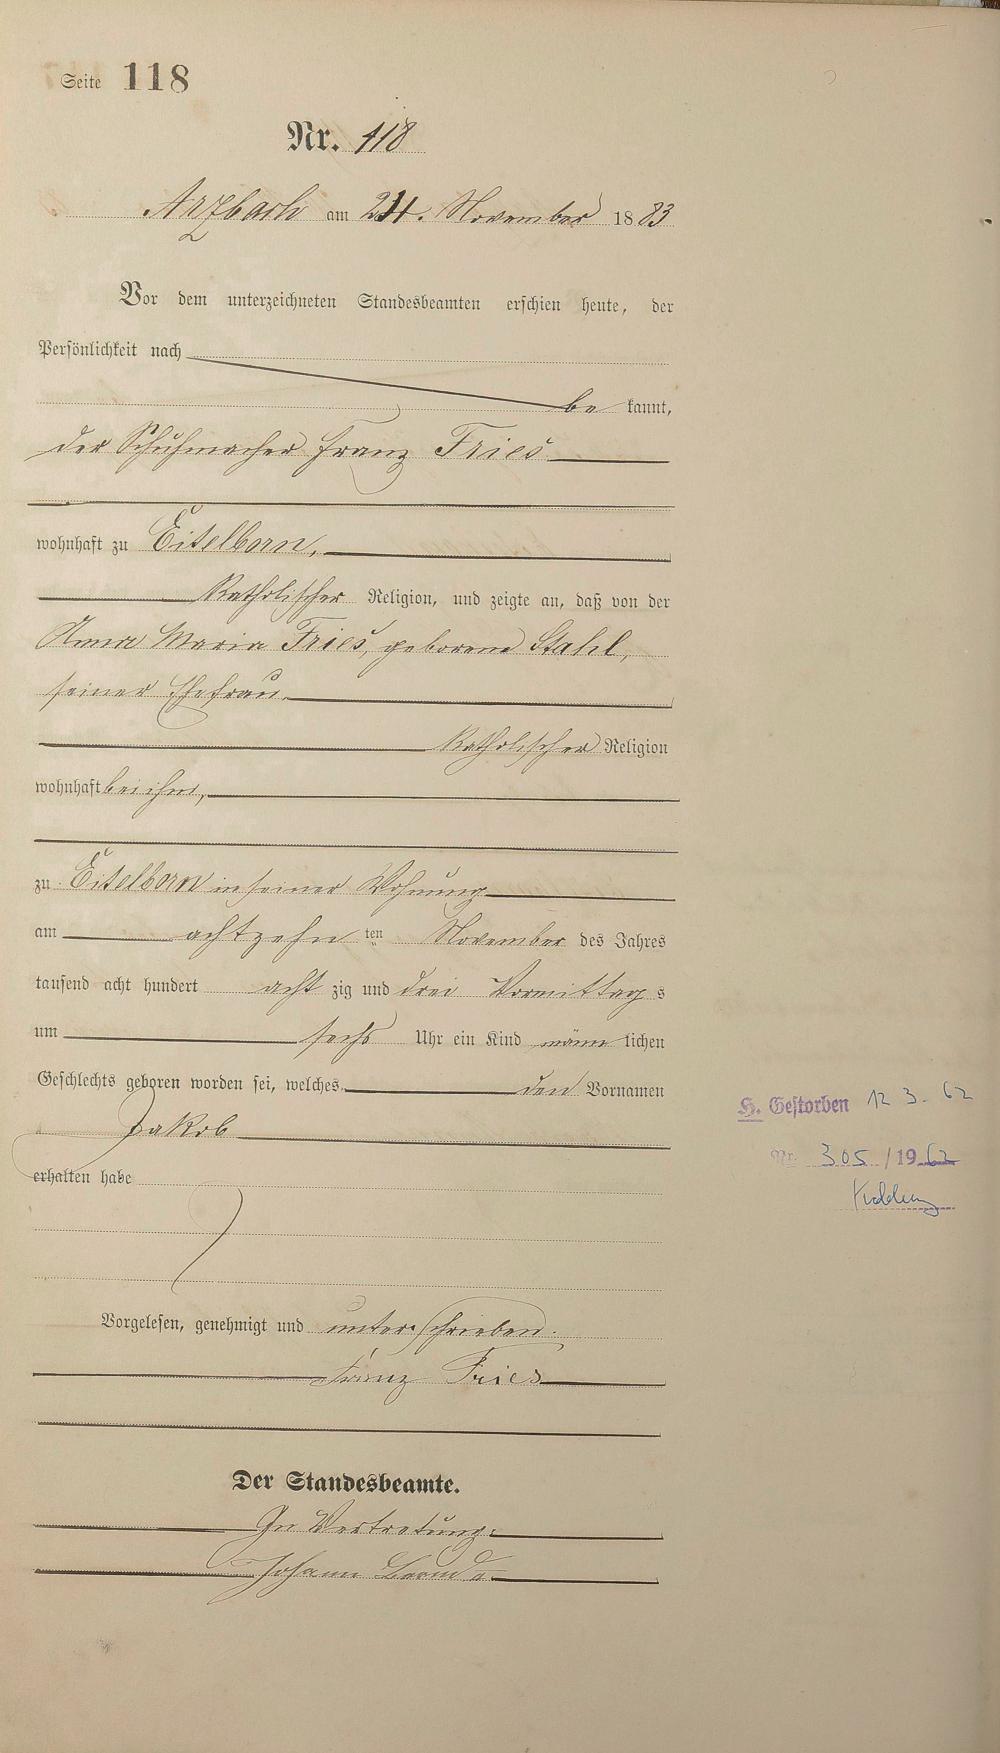 Seite 118
Nr. 118
Arzbach am 24. November 1883
Vor dem unterzeichneten Standesbeamten erschien heute, der
Persönlichkeit nach
be kannt,
der Schuhmacher Franz Fries
wohnhaft zu Eitelborn,
katholischer Religion, und zeigte an, daß von der
Anna Maria Fries, geborene Stahl,
seiner Ehefrau
katholischer Religion
wohnhaft bei ihm,
zu Eitelborn in seiner Wohnung
am achtzehn ten November des Jahres
tausend acht hundert acht zig und drei Vormittag s
um sechs Uhr ein Kind männ lichen
Geschlechts geboren worden sei, welches den Vornamen
Jakob
erhalten habe
Vorgelesen, genehmigt und unterschrieben.
Franz Fries
Der Standesbeamte.
In Vertretung:
Johann
H. Gestorben 12 3. 62
Nr. 305 / 1962